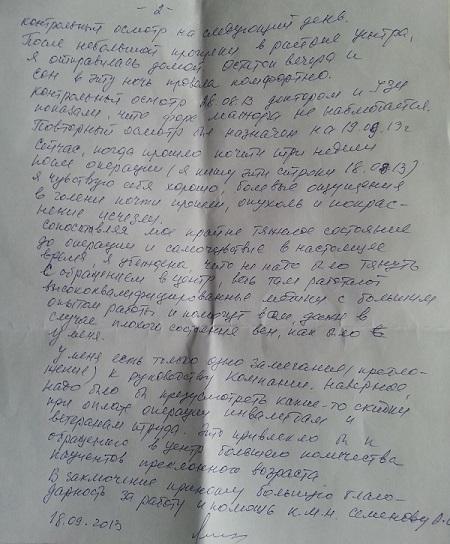 - 2 -
контрольный осмотр на следующий день.
После небольшой прогулки в районе центра,
я отправилась домой. Остаток вечера и
сон в эту ночь провела комфортно.
Контрольный осмотр 28.08.13 доктором и УЗИ
показали, что флебо не наблюдается.
Повторный осмотр был назначен на 19.09.13 г
Сейчас, когда прошло почти три недели
после операции (я пишу эти строки 18.09.13)
я чувствую себя хорошо, болевые ощущения
в голени почти прошли, опухоль и покрас-
нение исчезли.
Сопоставляя мое крайне тяжелое состояние
до операции и самочувствие в настоящее
время, я убеждена, что не надо было тянуть
с обращением в центр, ведь там работают
высококвалифицированные медики с большим
опытом работы и помогут вам, даже в
случае плохого состояния вен, как было
у меня.
У меня есть только одно замечание (предло-
жение) к руководству компании. Наверное,
надо было бы предусмотреть какие-то скидки
при оплате операции инвалидам и
ветеранам труда. Это привлекло бы к
обращению в центр большего количества
пациентов преклонного возраста
В заключение приношу большую благо-
дарность за работу и помощь к.м.н. Семенову А.Ю.
18.09.2013